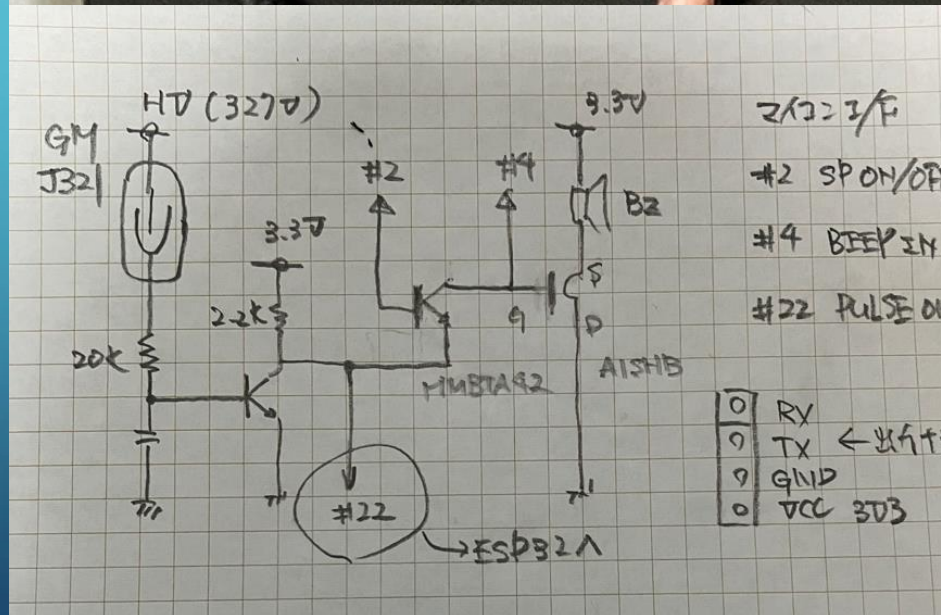 HV (327V)
GM
J321
#2
#4
3.3V
BZ
3.3V
2.2K
20K
S
G
D
MMBTA42
A1SHB
#22
→ESP32へ
マイコン I/F
#2 SP ON/OF
#4 BEEP IN
#22 PULSE OU
RX
TX ←出力
GND
VCC 3V3